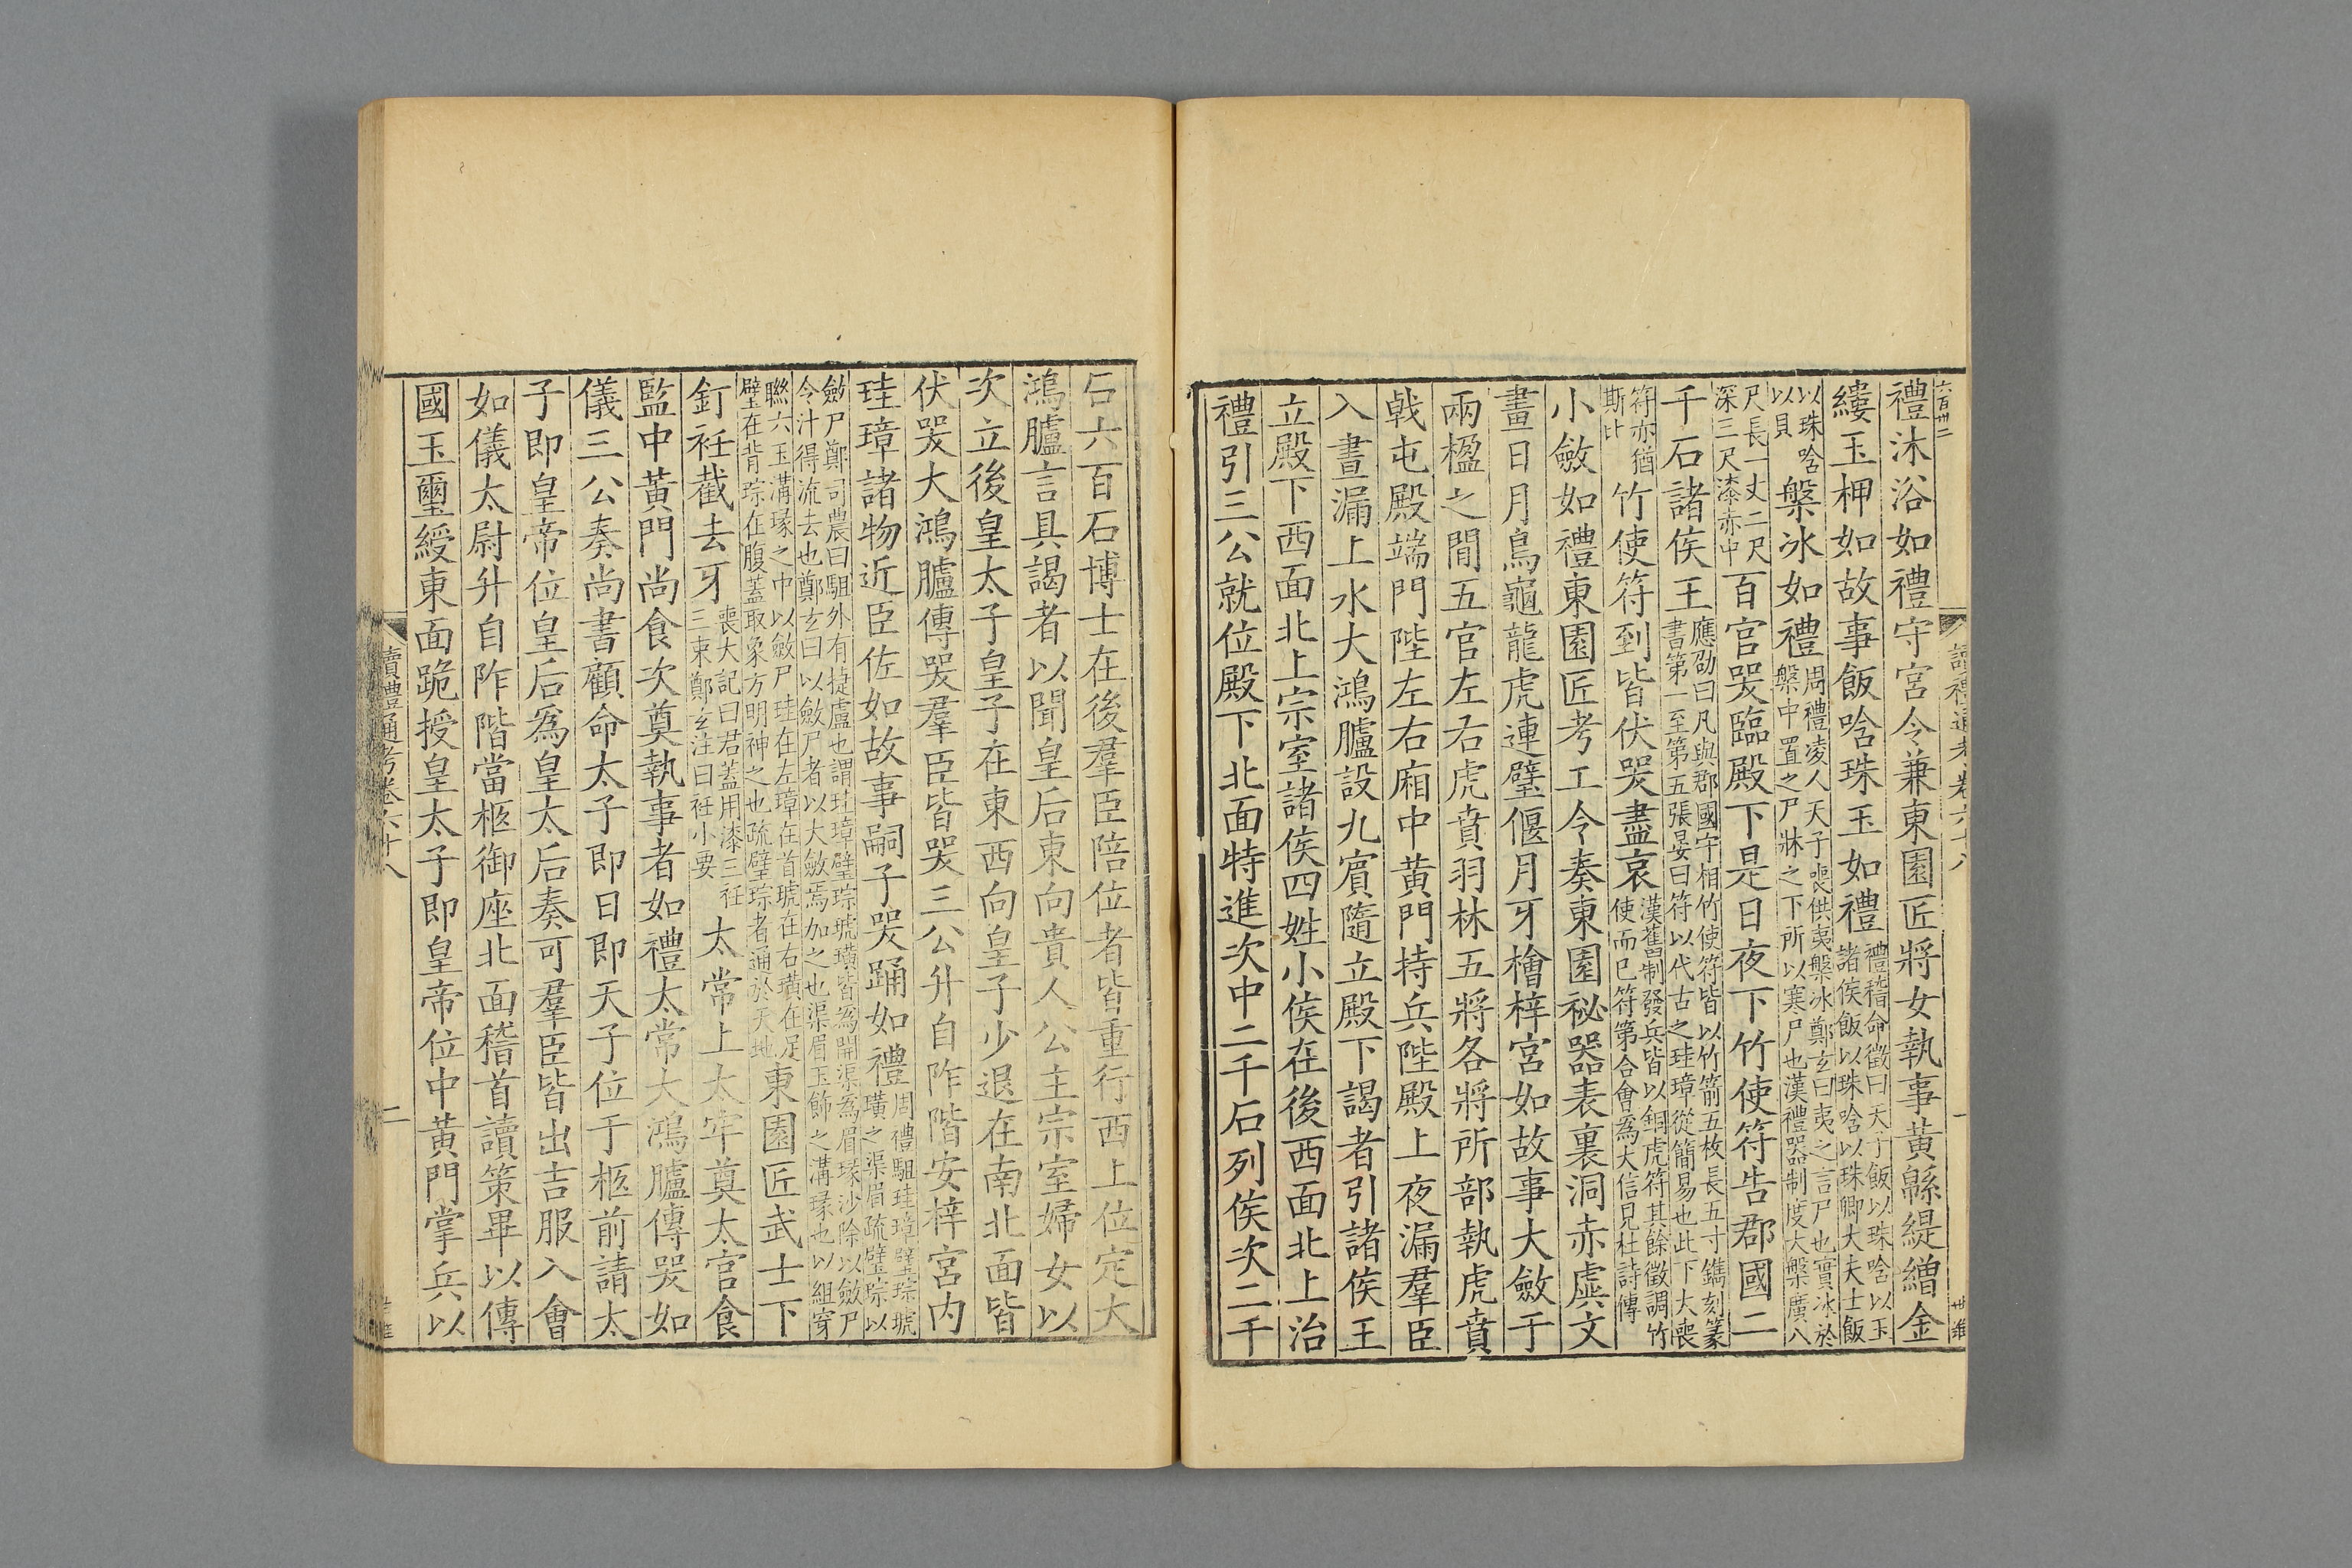 六百卌二
讀禮通考卷六十八
一
禮沐浴如禮守宮令兼東園匠將女執事黃緜緹繒金
縷玉柙如故事飯唅珠玉如禮禮稽命徵曰天子飯以珠唅以玉諸侯飯以珠唅以珠卿大夫士飯
以珠唅以貝槃冰如禮周禮凌人天子喪供夷槃冰鄭玄曰夷之言尸也實冰於槃中置之尸牀之下所以寒尸也漢禮器制度大槃廣八
尺長一丈二尺深三尺漆赤中百官哭臨殿下是日夜下竹使符告郡國二
千石諸侯王應劭曰凡與郡國守相竹使符皆以竹箭五枚長五寸鐫刻篆書第一至第五張晏曰符以代古之珪璋從簡易也此下大喪
符亦猶斯比竹使符到皆伏哭盡哀漢舊制發兵皆以銅虎符其餘徵調竹使而已符第合會為大信見杜詩傳
小斂如禮東園匠考工令奏東園祕器表裏洞赤虡文
畫日月鳥龜龍虎連璧偃月牙檜梓宮如故事大斂于
兩楹之閒五官左右虎賁羽林五將各將所部執虎賁
戟屯殿端門陛左右廂中黃門持兵陛殿上夜漏羣臣
入晝漏上水大鴻臚設九賓隨立殿下謁者引諸侯王
立殿下西面北上宗室諸侯四姓小侯在後西面北上治
禮引三公就位殿下北面特進次中二千石列侯次二千
石六百石博士在後羣臣陪位者皆重行西上位定大
鴻臚言具謁者以聞皇后東向貴人公主宗室婦女以
次立後皇太子皇子在東西向皇子少退在南北面皆
伏哭大鴻臚傳哭羣臣皆哭三公升自阼階安梓宮內
珪璋諸物近臣佐如故事嗣子哭踊如禮周禮駔珪璋璧琮琥璜之渠眉疏璧琮以
斂尸鄭司農曰駔外有捷盧也謂珪璋璧琮琥璜皆為開渠為眉瑑沙除以斂尸令汁得流去也鄭玄曰以斂尸者以大斂焉加之也渠眉玉飾之溝瑑也以組穿
聯六玉溝瑑之中以斂尸珪在左璋在首琥在右璜在足璧在背琮在腹蓋取象方明神之也疏璧琮者通於天地東園匠武士下
釘衽截去牙喪大記曰君蓋用漆三衽三束鄭玄注曰衽小要太常上太牢奠太官食
監中黃門尚食次奠執事者如禮太常大鴻臚傳哭如
儀三公奏尚書顧命太子即日即天子位于柩前請太
子即皇帝位皇后為皇太后奏可羣臣皆出吉服入會
如儀太尉升自阼階當柩御座北面稽首讀策畢以傳
國玉璽綬東面跪授皇太子即皇帝位中黃門掌兵以
讀禮通考卷六十八
二